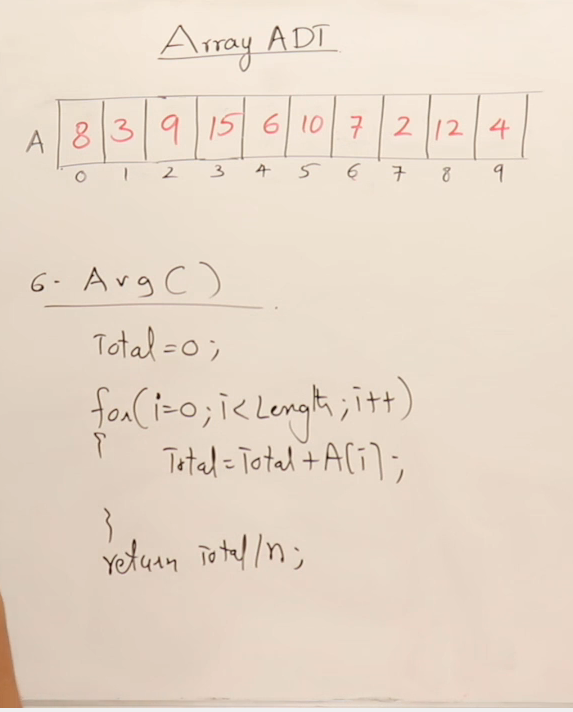 Array ADT
A 8 3 9 15 6 10 7 2 12 4
0 1 2 3 4 5 6 7 8 9
6- Avg()
Total=0;
for(i=0;i<Length;i++)
{
Total=Total+A[i];
}
return Total/n;